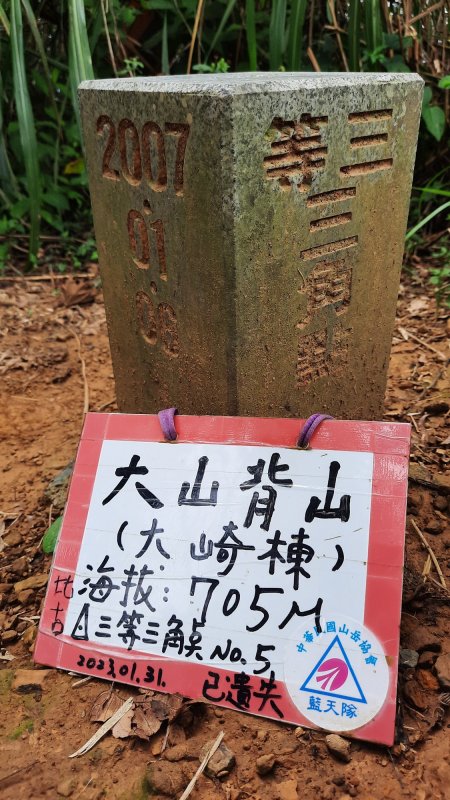 2007
01
三等
三角點
大山背山
(大崎棟)
海拔:705M
比古
△三等三角点 No.5
2023.01.31. 已遺失
中華民國山岳協會
藍天隊